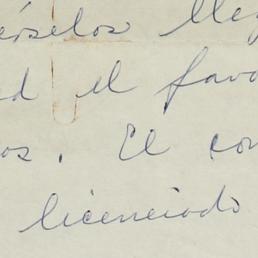 érselos lleg
ed el favo
os. El con
licenciado